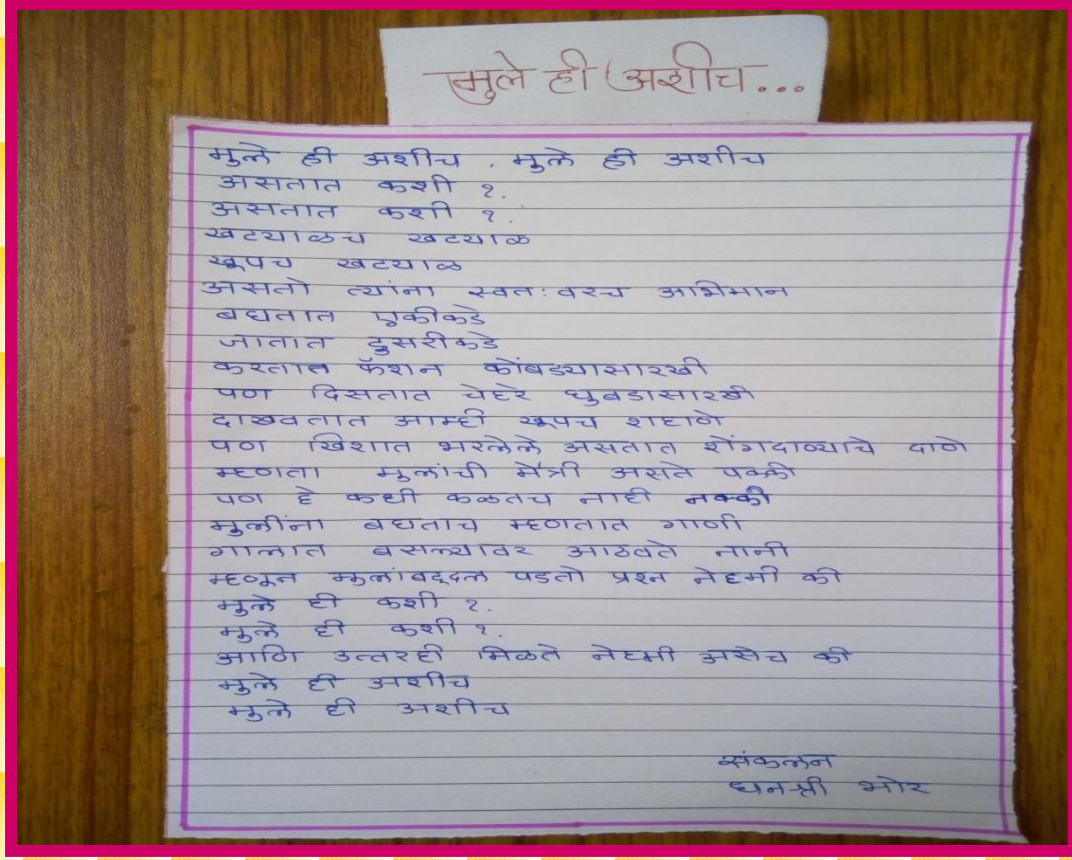 मुले ही अशीच...
मुले ही अशीच . मुले ही अशीच
असतात कशी ?.
असतात कशी ?.
खटयाळच खटयाळ
खूपच खटयाळ
असतो त्यांना स्वतःवरच अभिमान
बघतात एकीकडे
जातात दुसरीकडे
करतात फॅशन कोंबड्यासारखी
पण दिसतात चेहरे घुबडासारखे
दाखवतात आम्ही खूपच शहाणे
पण खिशात भरलेले असतात शेंगदाण्याचे दाणे
म्हणता मुलांची मैत्री असते पक्की
पण हे कधी कळतच नाही नक्की
मुलींना बघताच म्हणतात गाणी
गालात बसल्यावर आठवते नानी
म्हणून मुलांबद्दल पडतो प्रश्न नेहमी की
मुले ही कशी ?.
मुले ही कशी ?.
आणि उत्तरही मिळते नेहमी असेच की
मुले ही अशीच
मुले ही अशीच
संकलन
धनश्री भोर